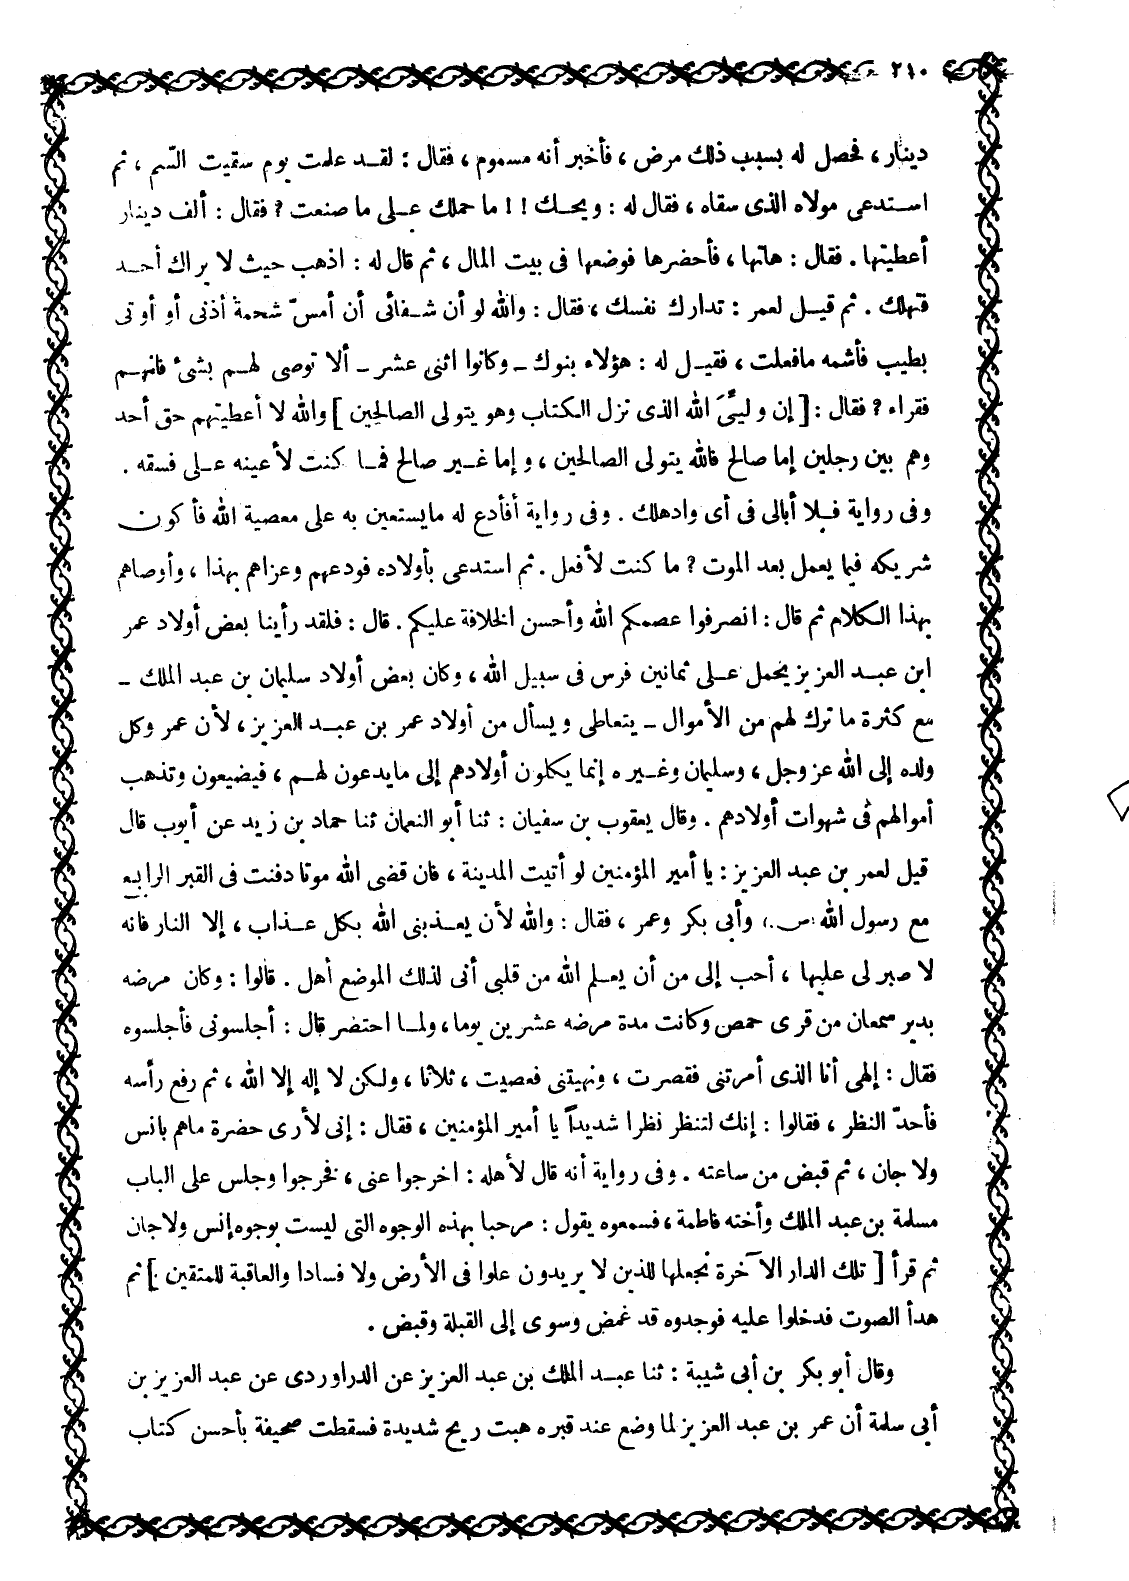 ٢١٠
دينار، فحصل له بسبب ذلك مرض، فأخبر أنه مسموم، فقال: لقد علمت يوم سقيت السّم، ثم
استدعى مولاه الذى سقاه، فقال له: ويحك!! ما حملك على ما صنعت؟ فقال: ألف دينار
أعطيتها. فقال: هاتها، فأحضرها فوضعها فى بيت المال، ثم قال له: اذهب حيث لا يراك أحد
فتهلك. ثم قيل لعمر: تدارك نفسك، فقال: والله لو أن شفائى أن أمسّ شحمة أذنى أو أوتى
بطيب فأشمه مافعلت، فقيل له: هؤلاء بنوك ـ وكانوا اثنى عشر ـ ألا توصى لهم بشئ فانهم
فقراء؟ فقال: [إن وليىَّ الله الذى نزل الكتاب وهو يتولى الصالحين] والله لا أعطيتهم حق أحد
وهم بين رجلين إما صالح فالله يتولى الصالحين، وإما غير صالح فما كنت لأعينه على فسقه.
وفى رواية فلا أبالى فى أى وادهلك. وفى رواية أفأدع له مايستعين به على معصية الله فأكون
شريكه فيما يعمل بعد الموت؟ ما كنت لأفعل. ثم استدعى بأولاده فودعهم وعزاهم بهذا، وأوصاهم
بهذا الكلام ثم قال: انصرفوا عصمكم الله وأحسن الخلافة عليكم. قال: فلقد رأينا بعض أولاد عمر
ابن عبد العزيز يحمل على ثمانين فرس فى سبيل الله، وكان بعض أولاد سليمان بن عبد الملك ـ
مع كثرة ما ترك لهم من الأموال ـ يتعاطى ويسأل من أولاد عمر بن عبد العزيز، لأن عمر وكل
ولده إلى الله عز وجل، وسليمان وغيره إنما يكلون أولادهم إلى مايدعون لهم، فيضيعون وتذهب
أموالهم فى شهوات أولادهم. وقال يعقوب بن سفيان: ثنا أبو النعمان ثنا حماد بن زيد عن أيوب قال
قيل لعمر بن عبد العزيز: يا أمير المؤمنين لو أتيت المدينة، فان قضى الله موتا دفنت فى القبر الرابع
مع رسول الله (ص.) وأبى بكر وعمر، فقال: والله لأن يعذبنى الله بكل عذاب، إلا النار فانه
لا صبر لى عليها، أحب إلى من أن يعلم الله من قلبى أنى لذلك الموضع أهل. قالوا: وكان مرضه
بدير سمعان من قرى حمص وكانت مدة مرضه عشرين يوما، ولما احتضر قال: أجلسونى فأجلسوه
فقال: إلهى أنا الذى أمرتنى فقصرت، ونهيتنى فعصيت، ثلاثا، ولكن لا إله إلا الله، ثم رفع رأسه
فأحدّ النظر، فقالوا: إنك لتنظر نظرا شديداً يا أمير المؤمنين، فقال: إنى لأرى حضرة ماهم بانس
ولا جان، ثم قبض من ساعته. وفى رواية أنه قال لأهله: اخرجوا عنى، فخرجوا وجلس على الباب
مسلمة بن عبد الملك وأخته فاطمة، فسمعوه يقول: مرحبا بهذه الوجوه التى ليست بوجوه إنس ولا جان
ثم قرأ [تلك الدار الآخرة نجعلها للذين لا يريدون علوا فى الأرض ولا فسادا والعاقبة للمتقين] ثم
هدأ الصوت فدخلوا عليه فوجدوه قد غمض وسوى إلى القبلة وقبض.
وقال أبو بكر بن أبى شيبة: ثنا عبد الملك بن عبد العزيز عن الدراوردى عن عبد العزيز بن
أبى سلمة أن عمر بن عبد العزيز لما وضع عند قبره هبت ريح شديدة فسقطت صحيفة بأحسن كتاب